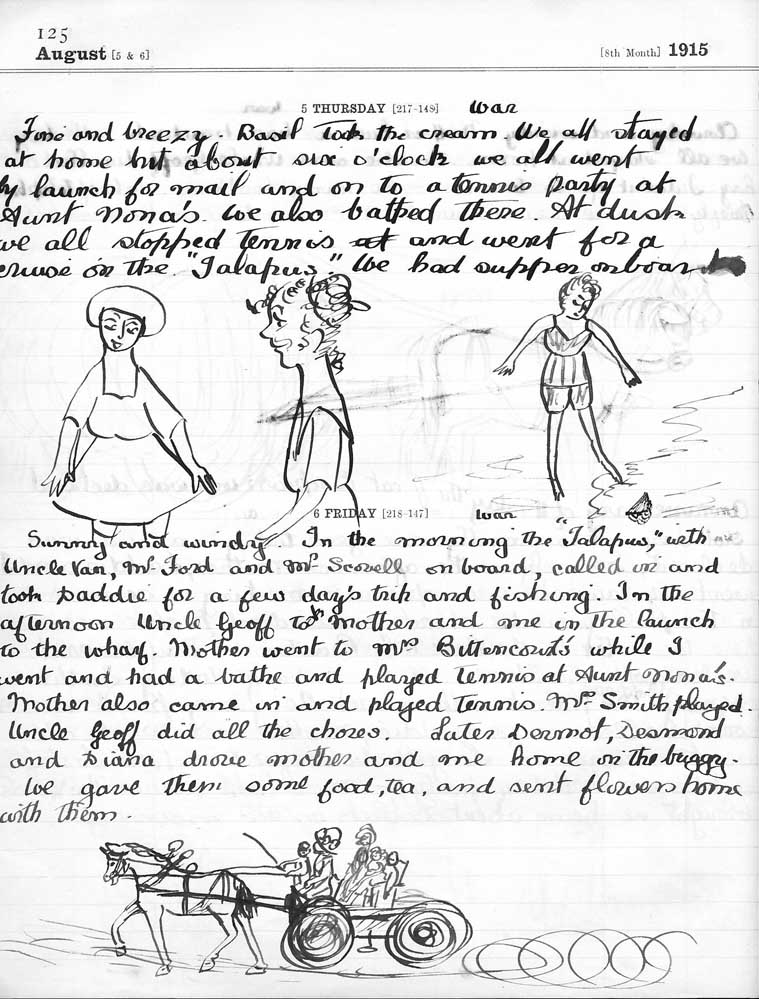 125
August [5 & 6] [8th Month] 1915
5 THURSDAY [217-148] War
Fine and breezy. Basil Took the cream. We all stayed
at home but about six o'clock we all went
by launch for mail and on to a tennis party at
Aunt Nona's. We also bathed there. At dusk
we all stopped tennis at and went for a
cruise on the "Jalapus." We had supper onboar
6 FRIDAY [218-147] War
Sunny and windy. In the morning the "Jalapus," with
Uncle Van, Mr Ford and Mr Scovell on board, called in and
took Daddie for a few day's trip and fishing. In the
afternoon Uncle Geoff Mother and me in the launch
to the wharf. Mother went to Mrs Bittencourt's while I
went and had a bathe and played tennis at Aunt Nona's.
Mother also came in and played tennis. Mrs Smith played.
Uncle Geoff did all the chores. Later Dermot, Desmond
and Diana drove mother and me home in the buggy.
We gave them some food, tea, and sent flowers home
with them.